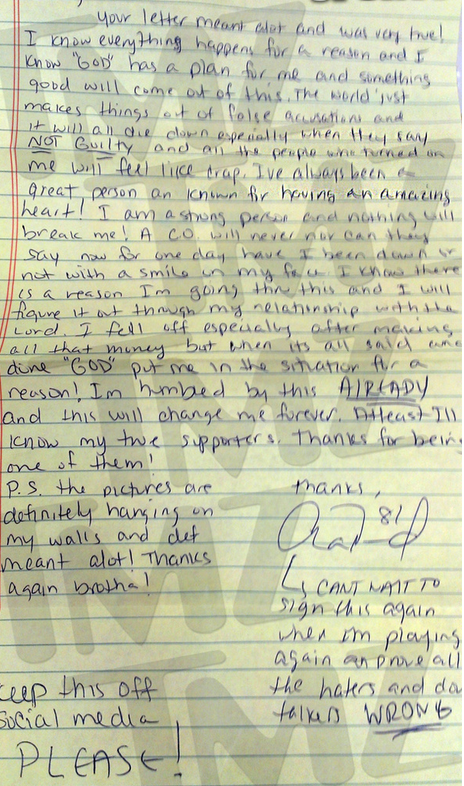 your letter meant alot and was very true!
I know everything happens for a reason and I
know "GOD" has a plan for me and something
good will come out of this. The world just
makes things out of false accusations and
it will all die down especially when they say
NOT GUILTY and all the people who turned on
me will feel like crap. I've always been a
great person an known for having an amazing
heart! I am a strong person and nothing will
break me! A CO. will never nor can they
say now for one day have I been down or
not with a smile on my face. I know there
is a reason I'm going thru this and I will
figure it out through my relationship with the
Lord. I fell off especially after making
all that money but when its all said and
done "GOD" put me in the situation for a
reason! I'm humbed by this AlREADY
and this will change me forever. Atleast I'll
know my true supporters. Thanks for being
one of them!
P.S. the pictures are
definitely hanging on
my walls and def
meant alot! Thanks
again brotha!
Thanks,
81
I CANT WAIT TO
sign this again
when I'm playing
again an prove all
the haters and do
talkers WRONG
keep this off
social media
PLEASE!
TMZ